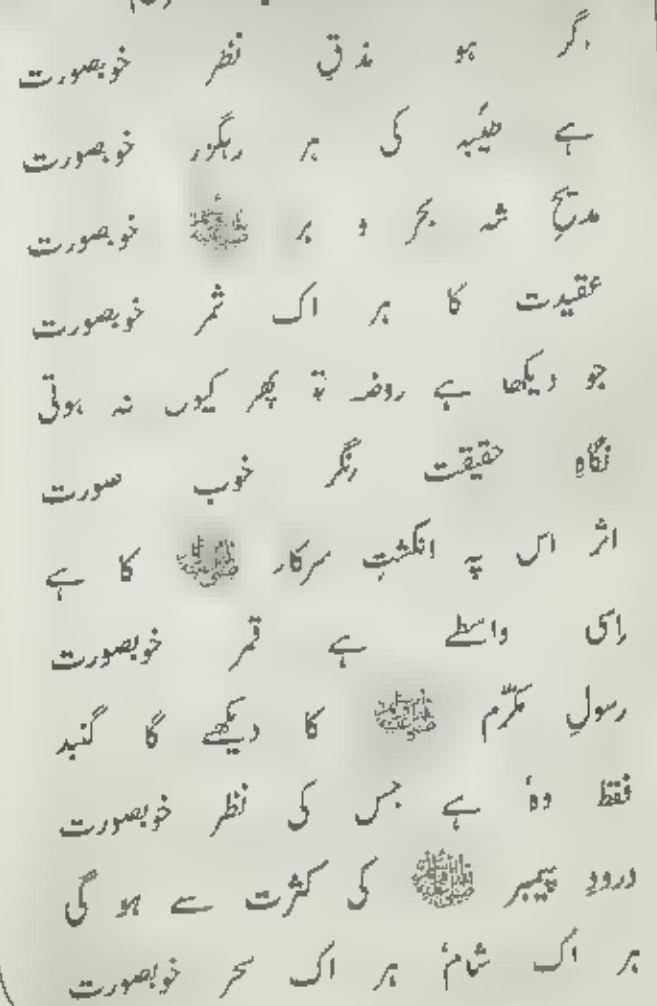 اگر ہو مذاقِ نظر خوبصورت
ہے طیبہ کی ہر رہگزر خوبصورت
مدیحِ شہ بحر و بر ﷺ خوبصورت
عقیدت کا ہر اک ثمر خوبصورت
جو دیکھا ہے روضہ تو پھر کیوں نہ ہوتی
نگاہِ حقیقت نگر خوب صورت
اثر اس پہ انگشتِ سرکار ﷺ کا ہے
اِسی واسطے ہے قمر خوبصورت
رسولِ مکرّم ﷺ کا دیکھے گا گنبد
فقط وہ ہے جس کی نظر خوبصورت
درودِ پیمبر ﷺ کی کثرت سے ہو گی
ہر اک شام ہر اک سحر خوبصورت